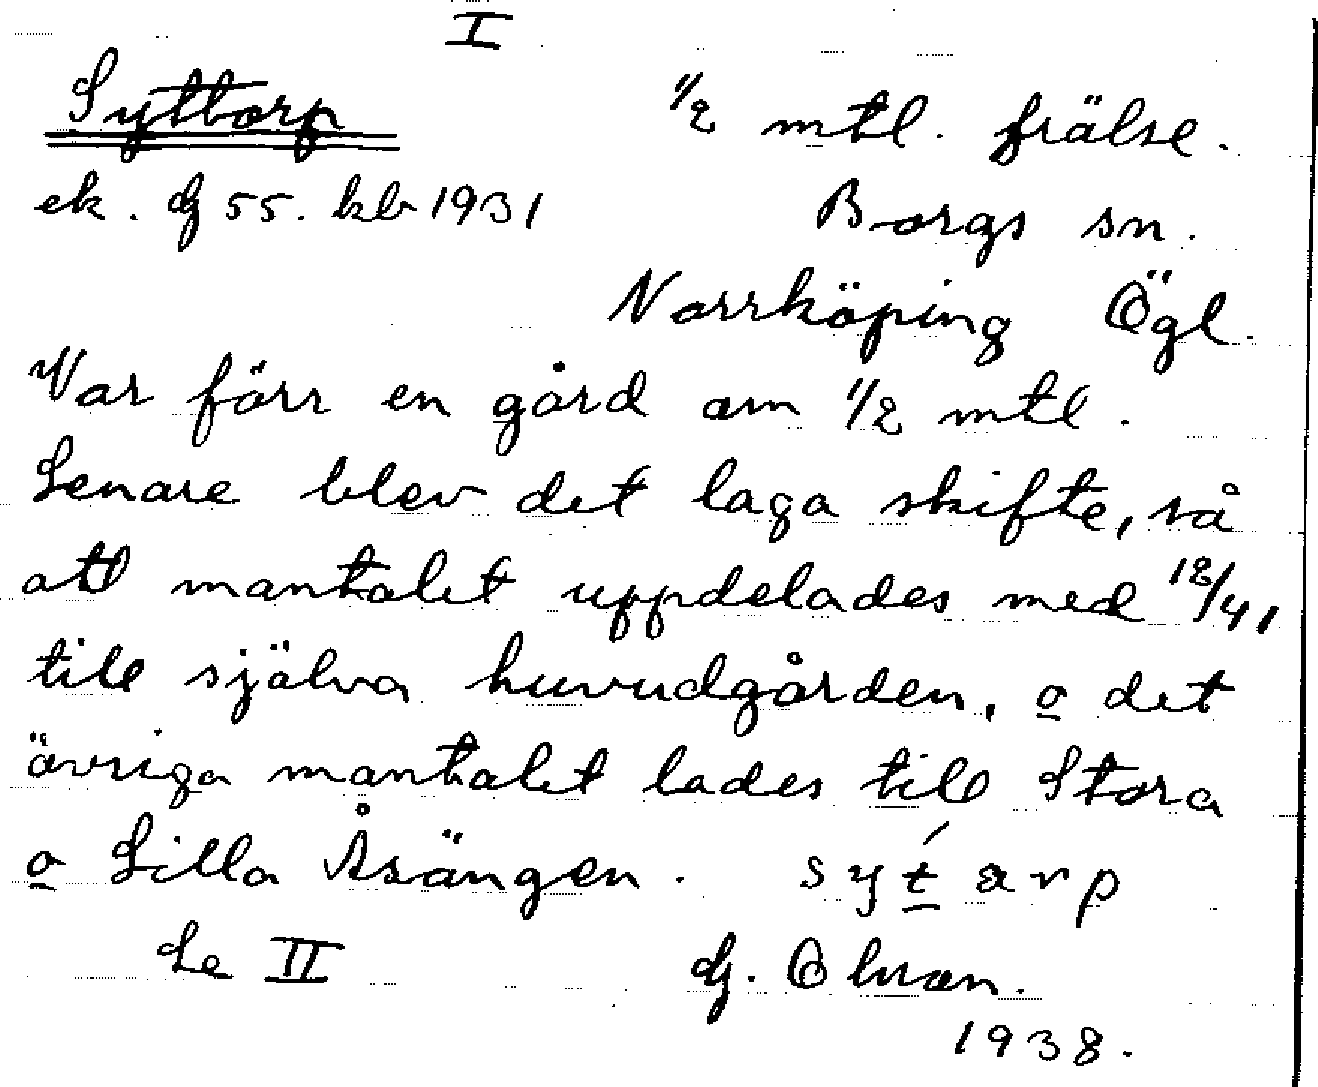 I
Syttorp 1/2 mtl. frälse.
ek. G 55. kb 1931 Borgs sn.
Norrköping Ögl.
Var förr en gård om 1/2 mtl.
Senare blev det laga skifte, så
att mantalet uppdelades med 12/41
till själva huvudgården, o det
övriga mantalet lades till Stora
o Lilla Åsängen. sytarp
Se II G. Ohlson.
1938.